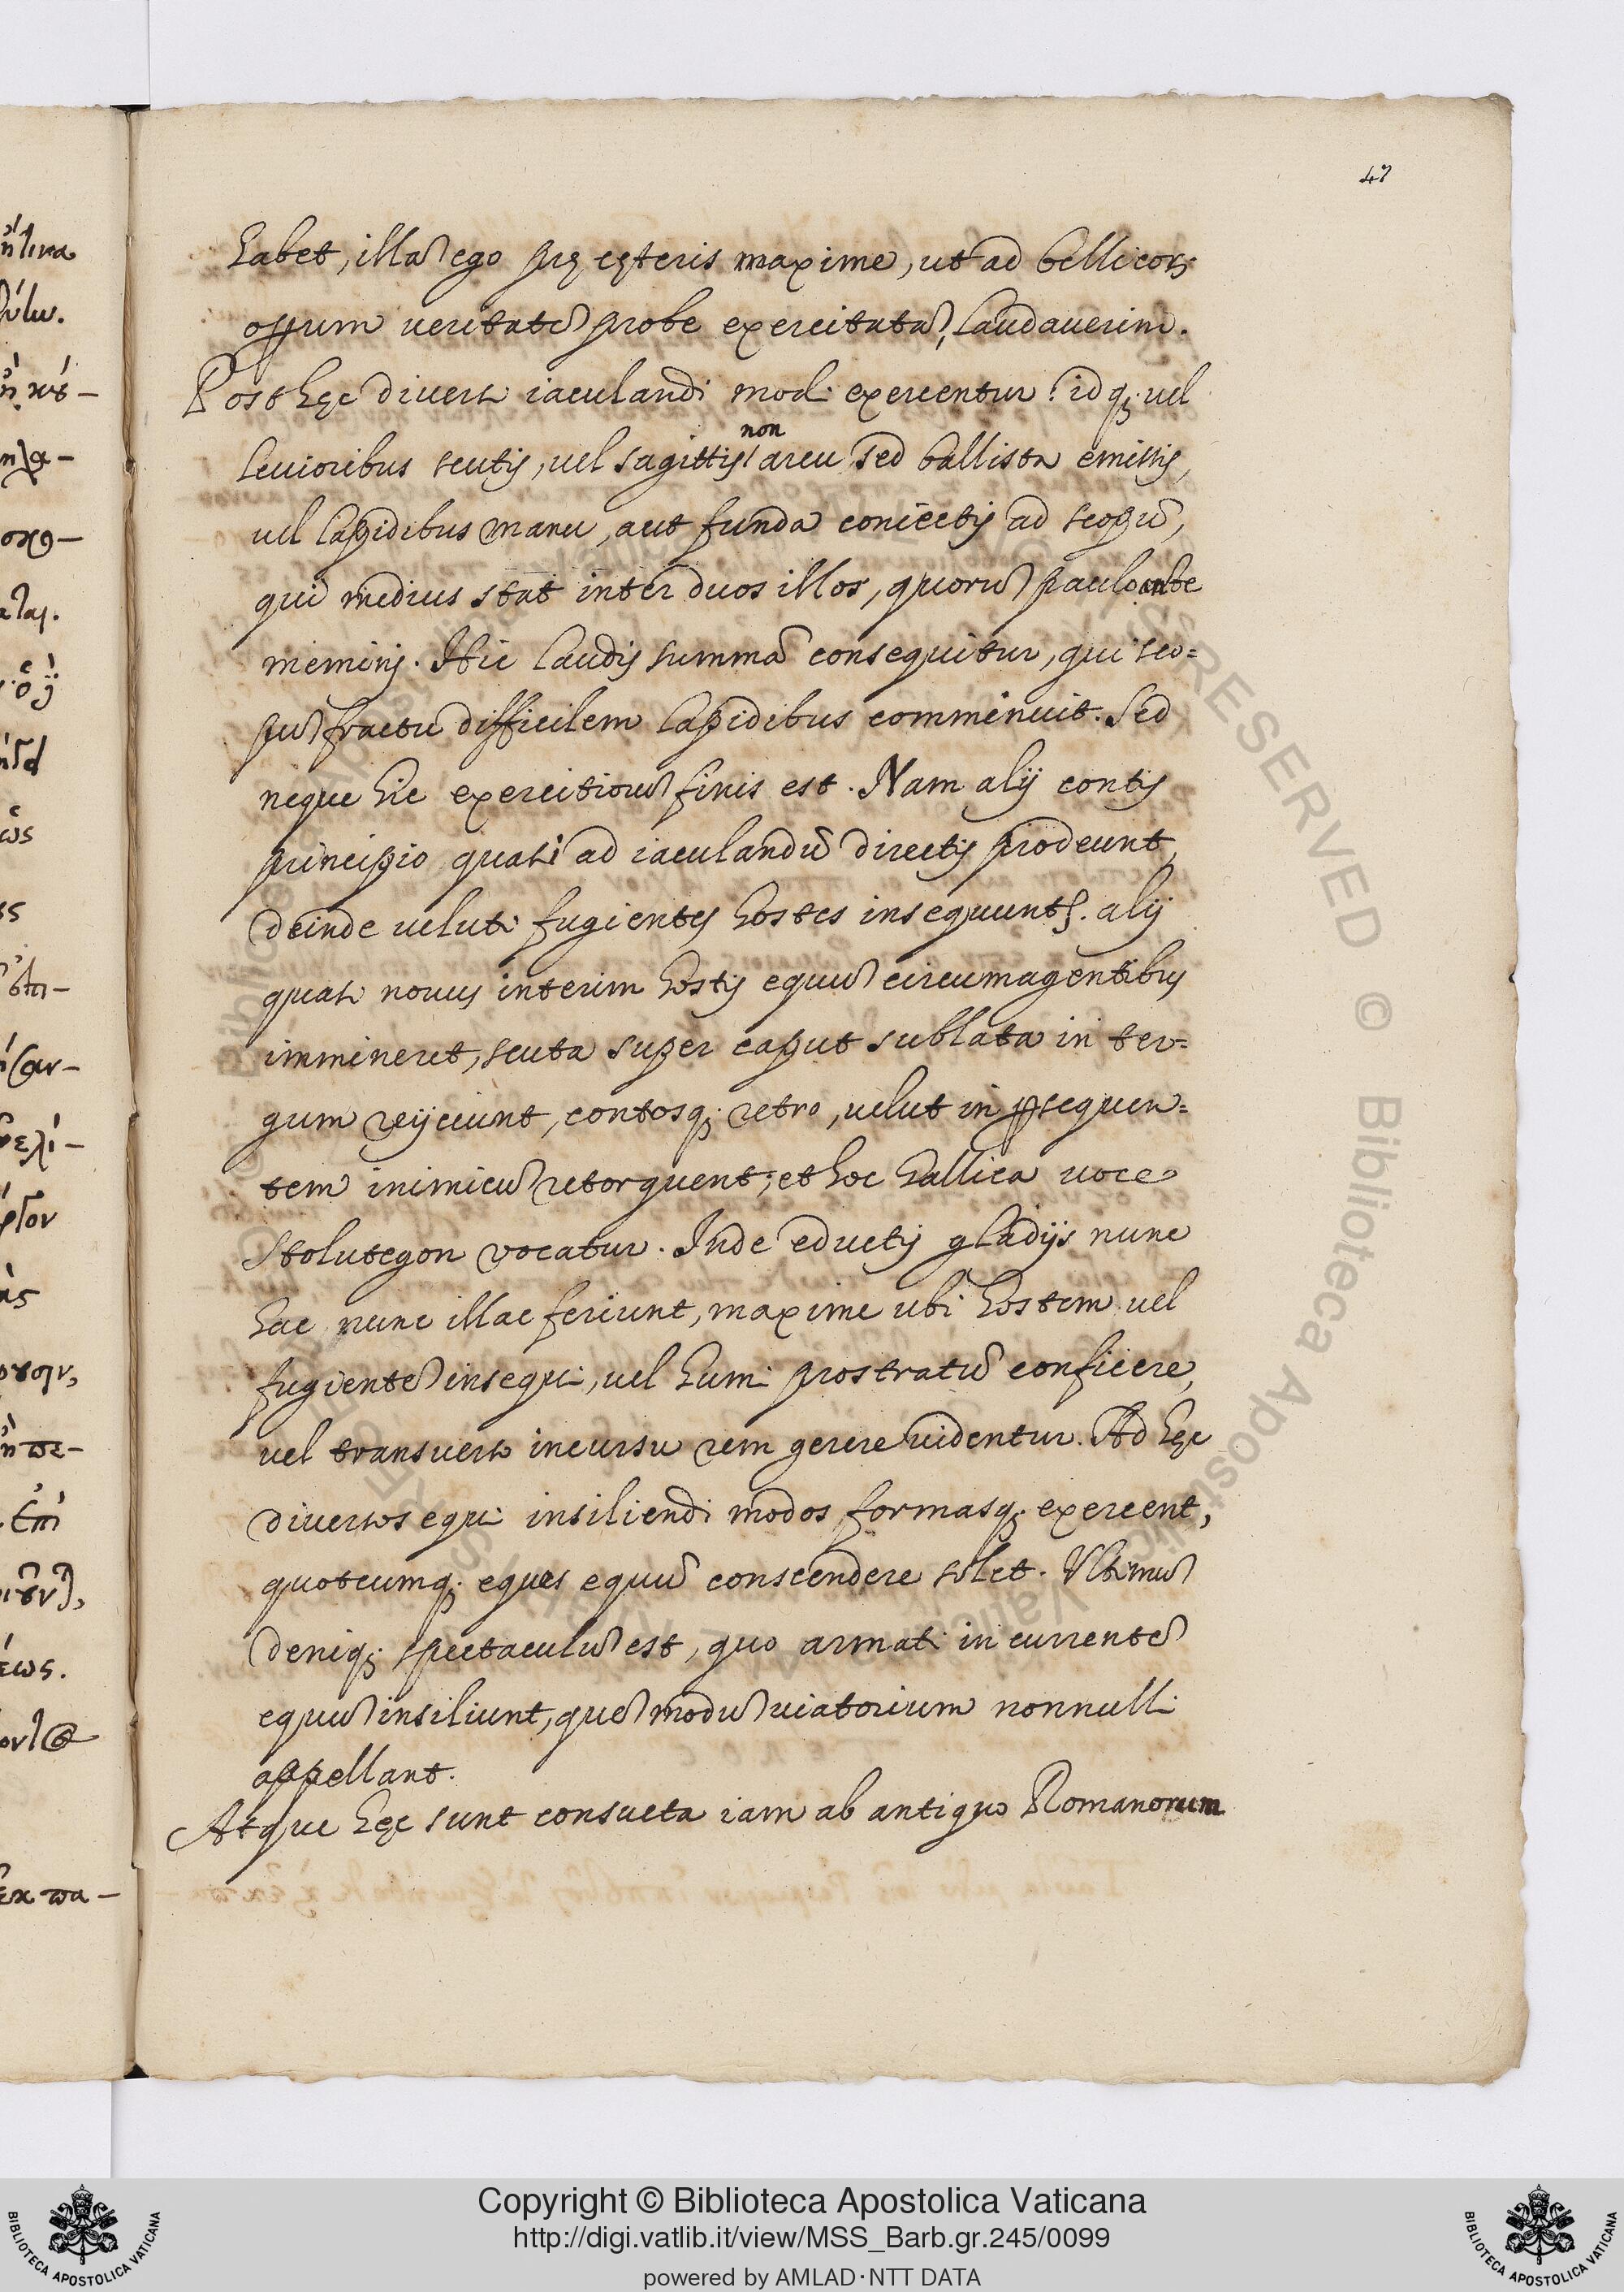 47
habet, illã ego prę cęteris maxime, ut ad bellicorũ
operum veritatẽ probe exercitatã, laudaverim.
Post hęc diversi iaculandi modi exercentur: idq; vel
levioribus scutis, vel sagittis non arcu sed ballista emissis,
vel lapidibus manu, aut funda coniectis ad scopũ,
qui medius stat inter duos illos, quorũ paulo ante
memini. Hic laudis summã consequitur, qui sco=
pũ fractu difficilem lapidibus comminuit. Sed
neque hic exercitiorũ finis est. Nam alij contis
principio quasi ad iaculandũ directis prodeunt,
deinde veluti fugientes hostes insequuntr. alij
quasi novus interim hostis equũ circumagentibus
immineret, scuta super caput sublata in ter=
gum reijciunt, contosq; retro, velut in persequen=
tem inimicũ retorquent; et hoc Gallica voce
Stolutegon vocatur. Inde eductis gladijs nunc
hac nunc illac feriunt, maxime ubi hostem vel
fugientẽ insequi, vel humi prostratũ conficere,
vel transverso incursu rem gerere videntur. Ad hęc
diversos equi insiliendi modos formasq; exercent,
quotcumq; eques equũ conscendere solet. Ultimũ
deniq; spectaculũ est, quo armati in currentẽ
equũ insiliunt, quẽ modũ viatorium nonnulli
appellant.
Atque hęc sunt consueta iam ab antiquo Romanorum
ἐκ πα-
Copyright © Biblioteca Apostolica Vaticana
http://digi.vatlib.it/view/MSS_Barb.gr.245/0099
powered by AMLAD·NTT DATA
BIBLIOTECA APOSTOLICA VATICANA
BIBLIOTECA APOSTOLICA VATICANA